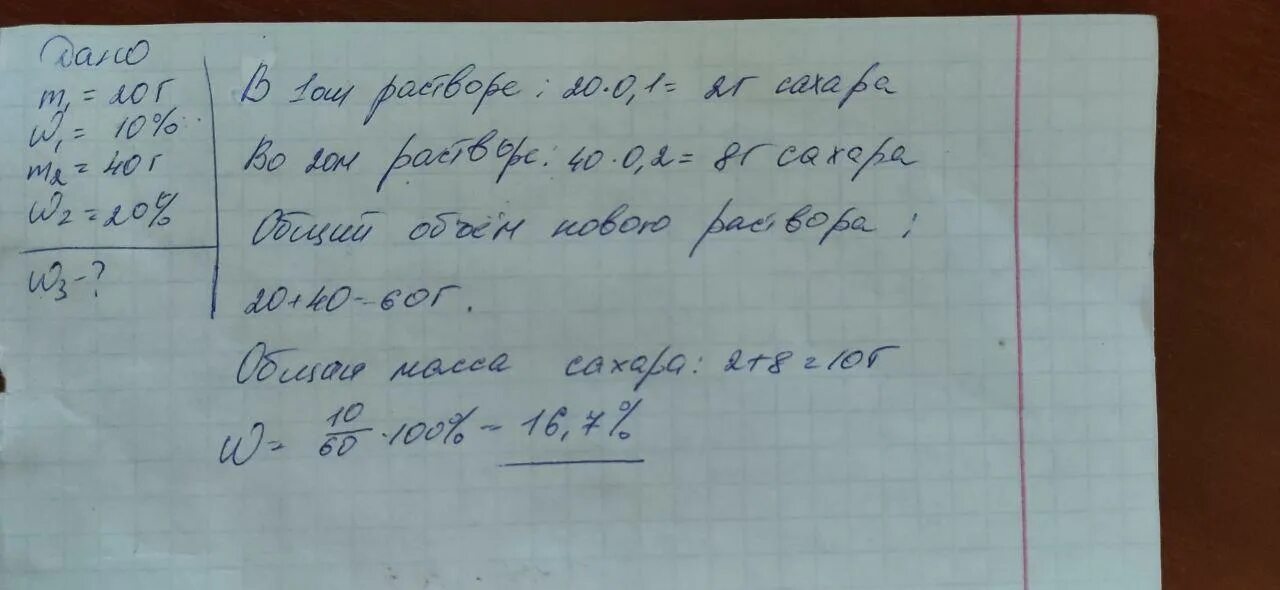 Дано
m₁ = 20г
ω₁ = 10%
m₂ = 40г
ω₂ = 20%
ω₃ - ?
В 1ом растворе: 20·0,1 = 2г сахара
Во 2ом растворе: 40·0,2 = 8г сахара
Общий объём нового раствора:
20+40 = 60г.
Общая масса сахара: 2+8 = 10г
ω = 10/60 · 100% = 16,7%